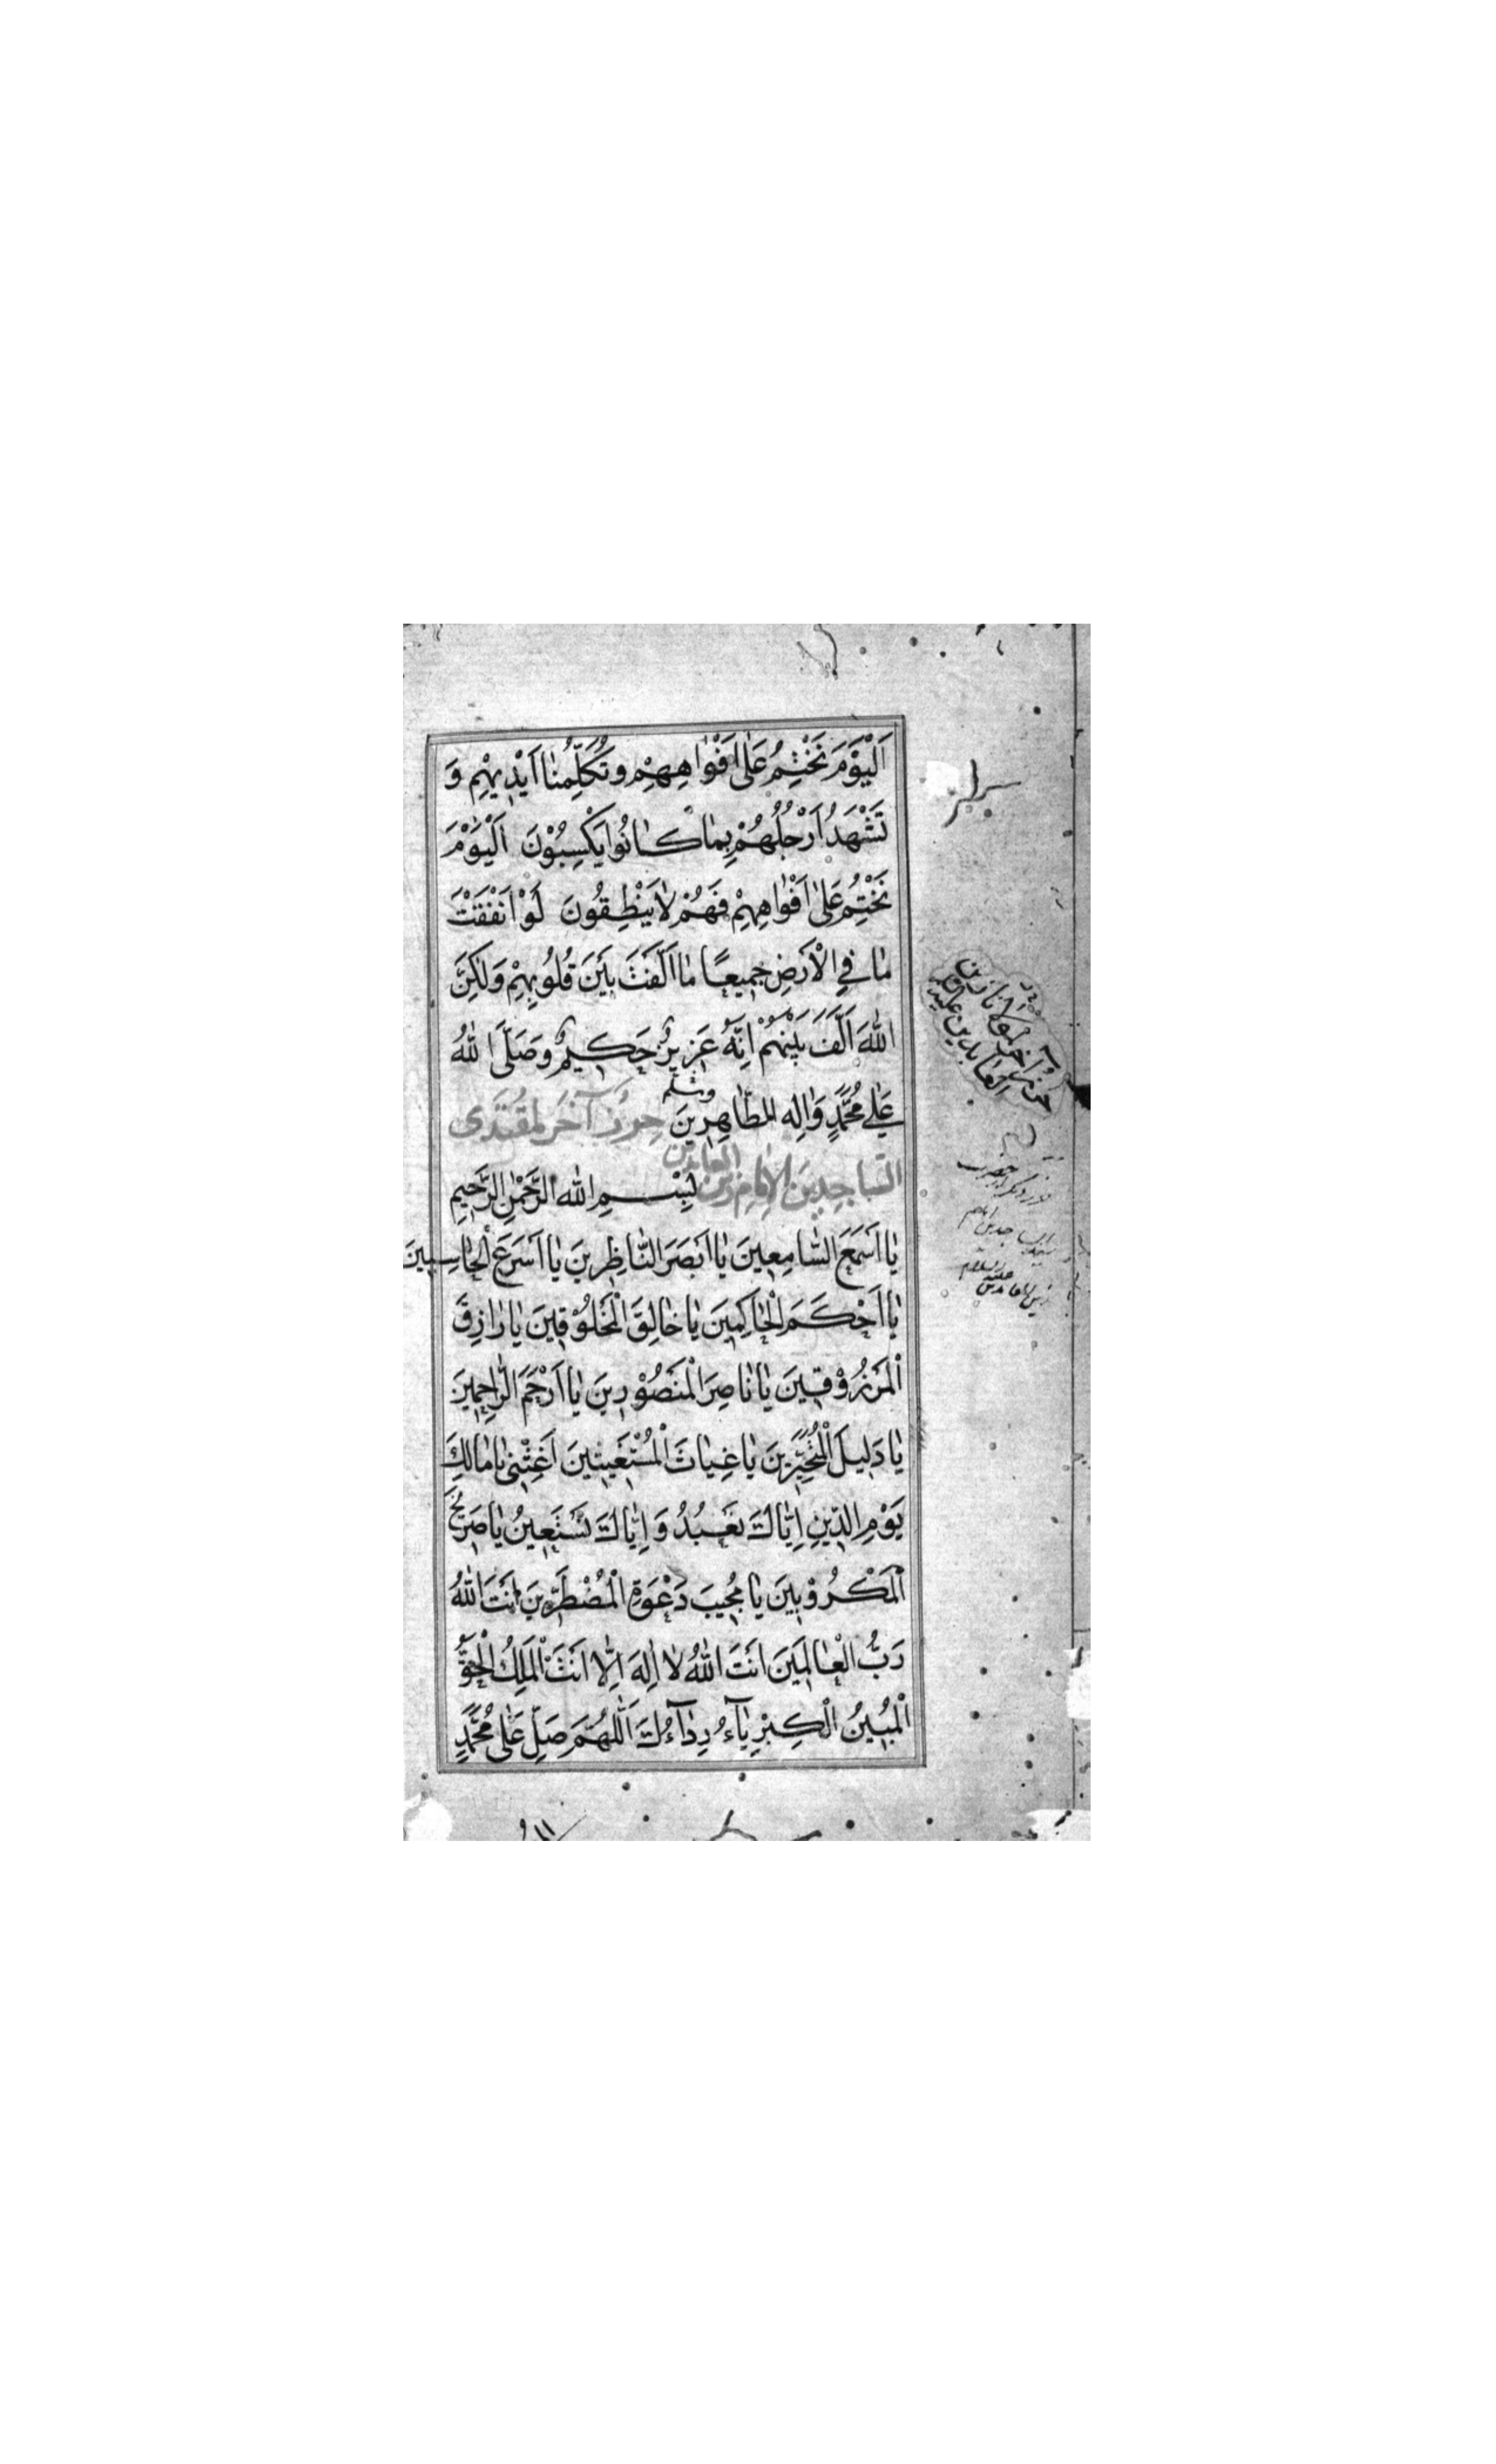 اَلْيَوْمَ نَخْتِمُ عَلٰى اَفْوٰاهِهِمْ وَتُكَلِّمُنٰا اَيْدِيهِمْ وَ
تَشْهَدُ اَرْجُلُهُمْ بِمٰا كٰانُوا يَكْسِبُوْنَ اَلْيَوْمَ
نَخْتِمُ عَلٰى اَفْوٰاهِهِمْ فَهُمْ لٰا يَنْطِقُونَ لَوْ اَنْفَقْتَ
مٰا فِي الْاَرْضِ جَمِيعًا مٰا اَلَّفْتَ بَيْنَ قُلُوبِهِمْ وَلٰكِنَّ
اللّٰهَ اَلَّفَ بَيْنَهُمْ اِنَّهُ عَزِيزٌ حَكِيمٌ وَصَلَّى اللّٰهُ
عَلٰى مُحَمَّدٍ وَاٰلِهِ الطّٰاهِرِينَ وسلم حِرْزٌ آخَرَ لمقتدى
السّٰاجِدِينَ الْاِمٰامِ زين العابدين بِسْمِ اللّٰهِ الرَّحْمٰنِ الرَّحِيمِ
يٰا اَسْمَعَ السّٰامِعِينَ يٰا اَبْصَرَ النّٰاظِرِينَ يٰا اَسْرَعَ الْحٰاسِبِينَ
يٰا اَحْكَمَ الْحٰاكِمِينَ يٰا خٰالِقَ الْمَخْلُوْقِينَ يٰا رٰازِقَ
الْمَرْزُوْقِينَ يٰا نٰاصِرَ الْمَنْصُوْرِينَ يٰا اَرْحَمَ الرّٰاحِمِينَ
يٰا دَلِيلَ الْمُتَحَيِّرِينَ يٰا غِيٰاثَ الْمُسْتَغِيثِينَ اَغِثْنِى يٰا مٰالِكَ
يَوْمِ الدِّينِ اِيّٰاكَ نَعْبُدُ وَ اِيّٰاكَ نَسْتَعِينُ يٰا صَرِيخَ
الْمَكْرُوْبِينَ يٰا مُجِيبَ دَعْوَةِ الْمُضْطَرِّينَ اَنْتَ اللّٰهُ
رَبُّ الْعٰالَمِينَ اَنْتَ اللّٰهُ لٰا اِلٰهَ اِلّٰا اَنْتَ الْمَلِكُ الْحَقُّ
الْمُبِينُ الْكِبْرِيٰآءُ رِدٰآءُكَ اَللّٰهُمَّ صَلِّ عَلٰى مُحَمَّدٍ